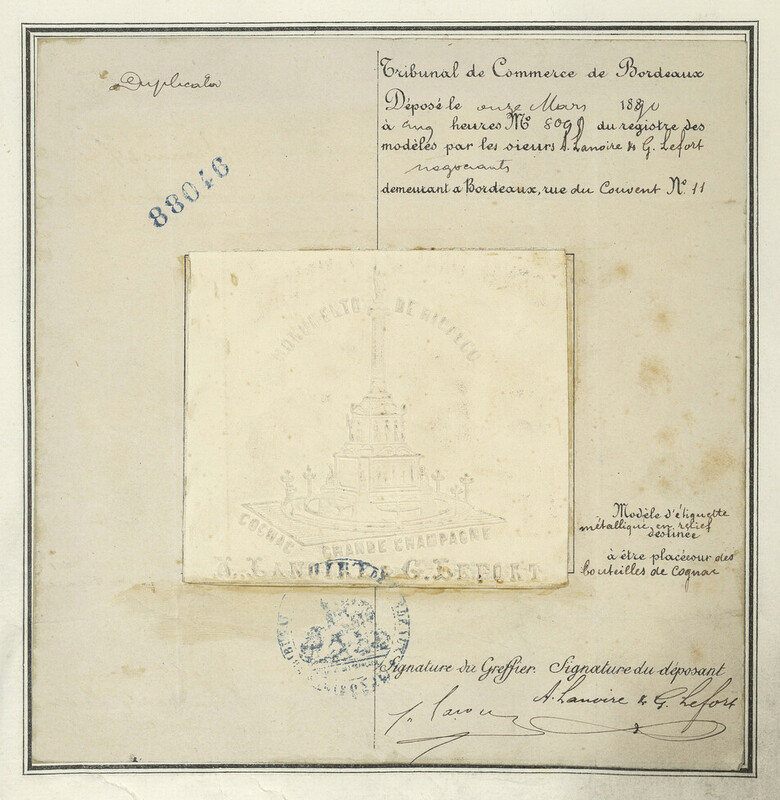 Duplicata
88046
Tribunal de Commerce de Bordeaux
Déposé le onze Mars 1890
à cinq heures Nº 809 du registre des
modèles par les sieurs A. Lanoire & G. Lefort
negociants
demeurant a Bordeaux, rue du Couvent Nº 11
DE
COGNAC GRANDE CHAMPAGNE
A. LANOIRE & G. LEFORT
Modèle d'étiquette
métallique en relief
destinée
à être placée sur des
bouteilles de Cognac
Signature du Greffier. Signature du déposant
A. Lanoire & G. Lefort